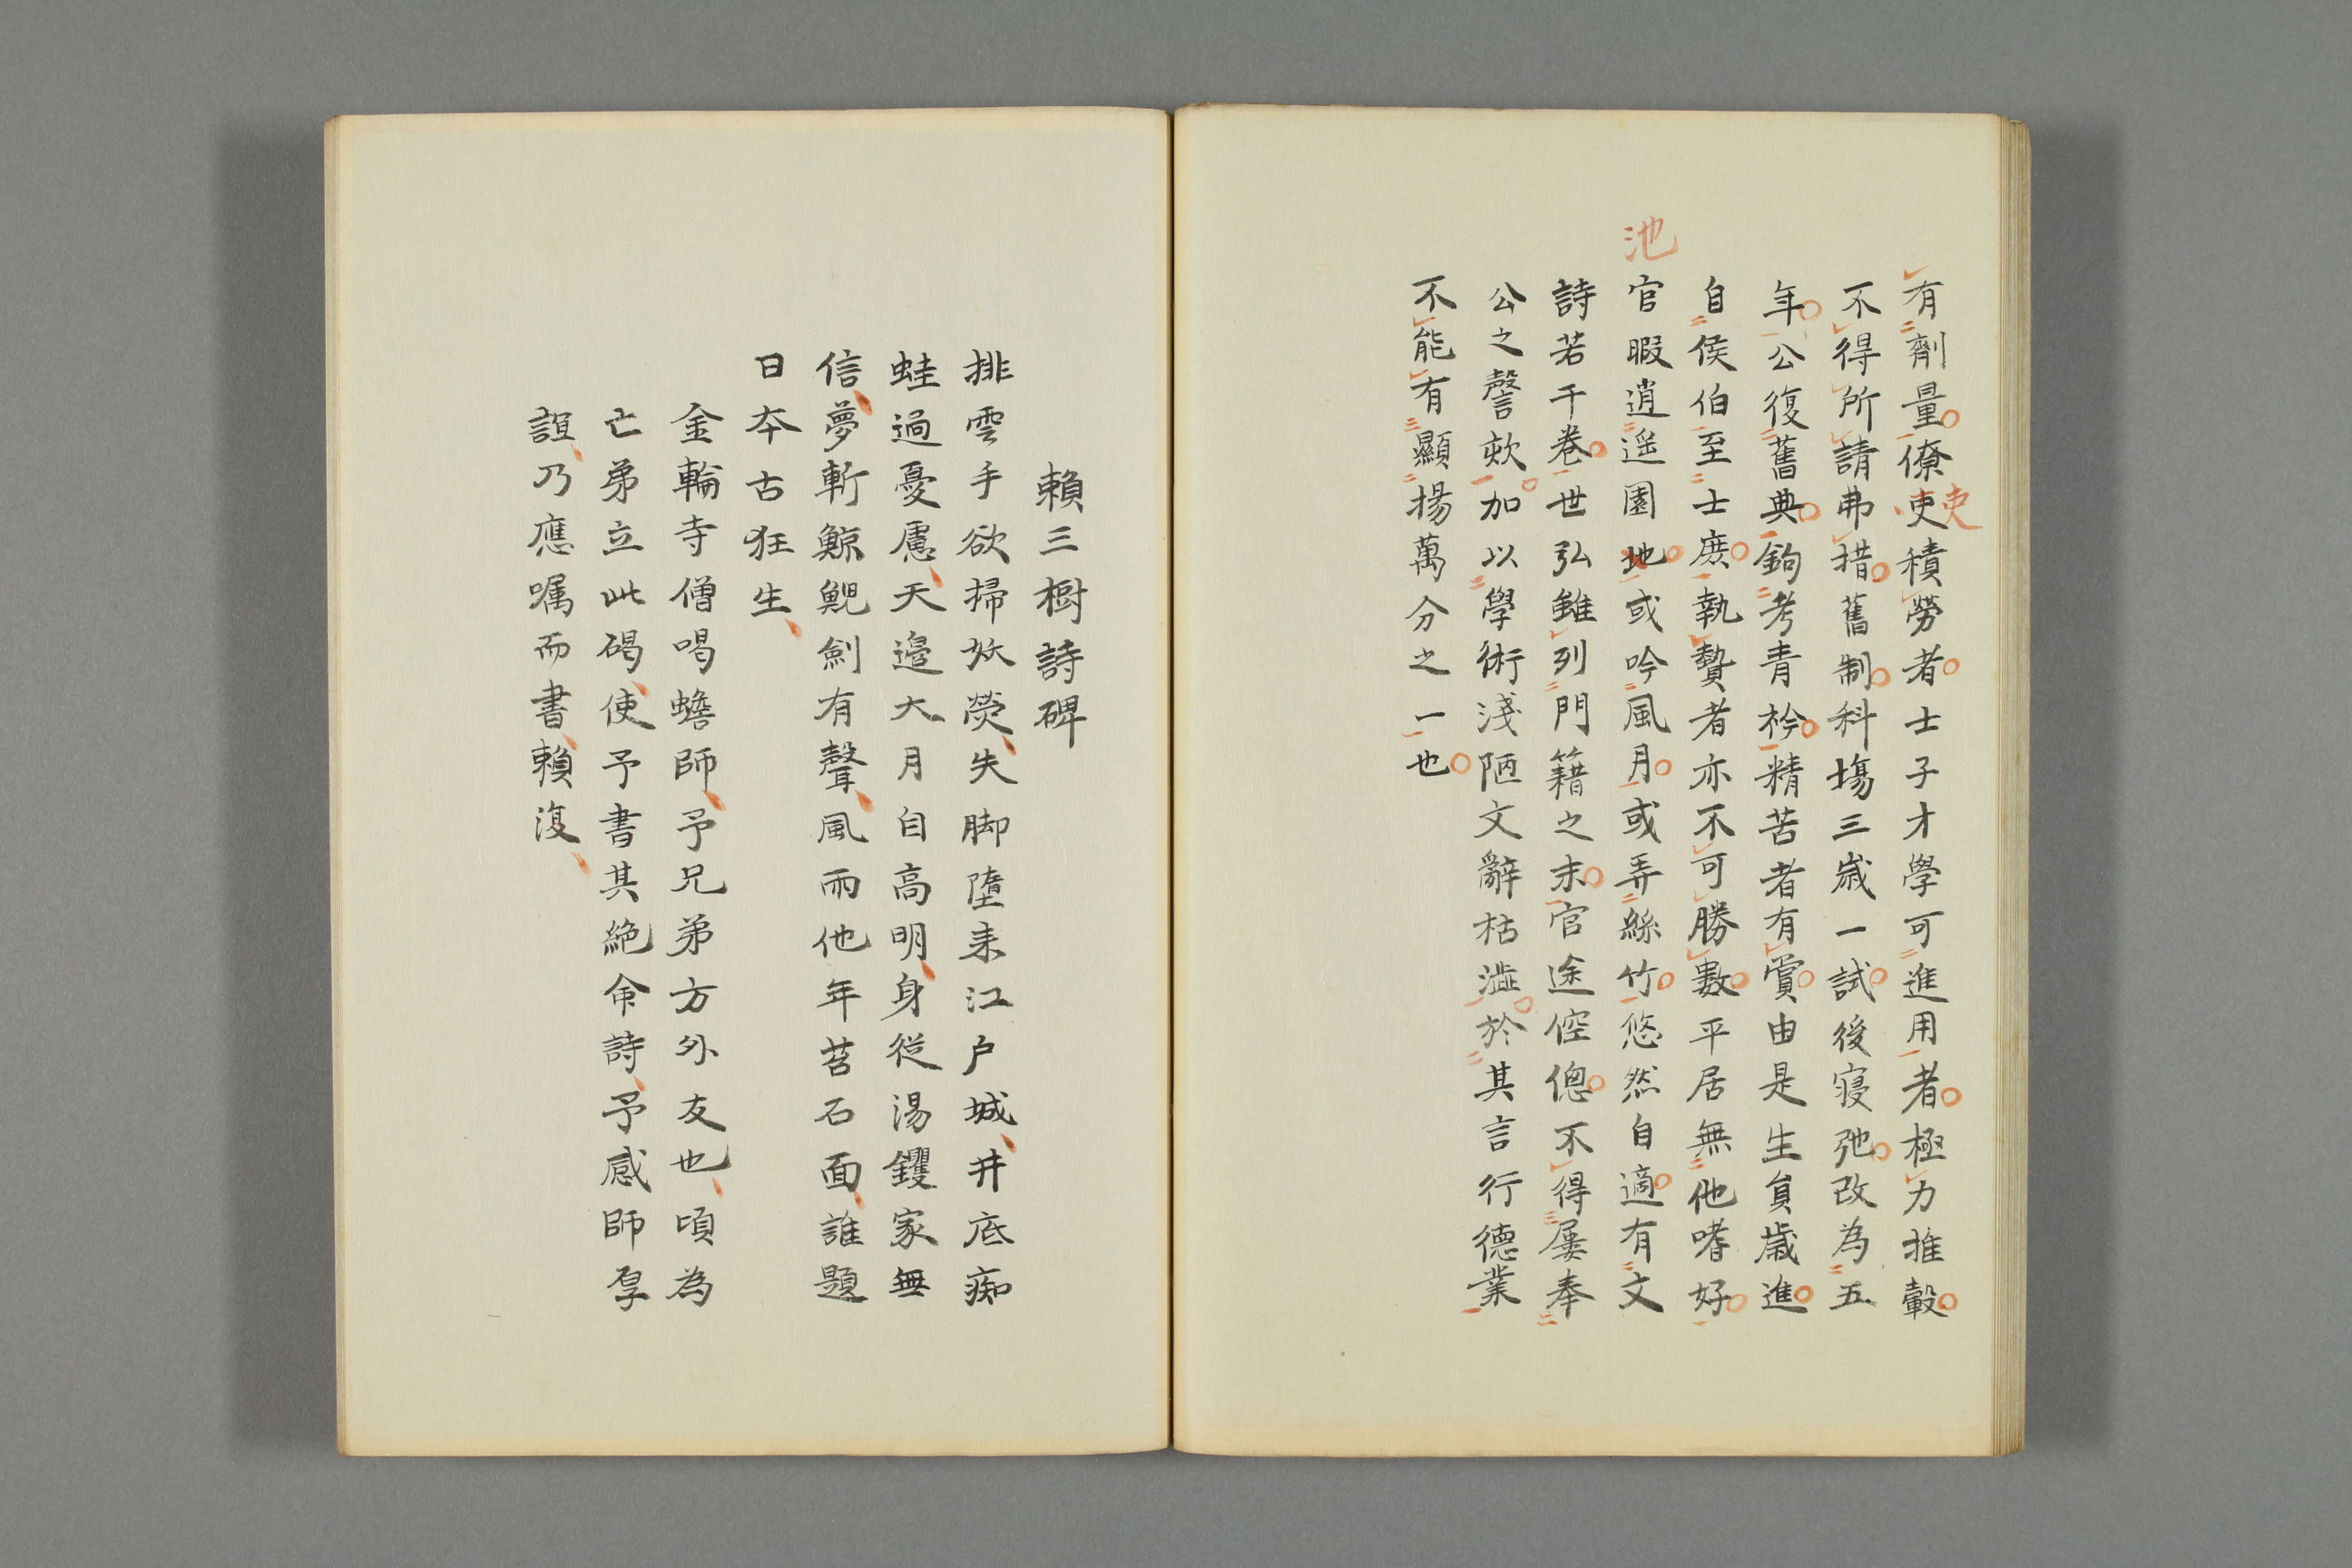 有劑量僚吏積勞者士子才學可進用者極力推轂
吏
不得所請弗措舊制科場三歲一試後寖弛改為五
年公復舊典鉤考青衿精苦者有賞由是生員歲進
自侯伯至士庶執贄者亦不可勝數平居無他嗜好
池
官暇逍遥園地或吟風月或弄絲竹悠然自適有文
詩若干卷世弘雖列門籍之末官途倥傯不得屡奉
公之謦欬加以學術淺陋文辭枯澁於其言行德業
不能有顯揚萬分之一也
賴三樹詩碑
排雲手欲掃妖熒失脚墮来江户城井底痴
蛙過憂慮天邉大月自高明身從湯鑊家無
信夢斬鯨鯢劍有聲風雨他年苔石面誰題
日本古狂生
金輪寺僧喝蟾師予兄弟方外友也頃為
亡弟立此碣使予書其絶命詩予感師厚
誼乃應嘱而書賴復